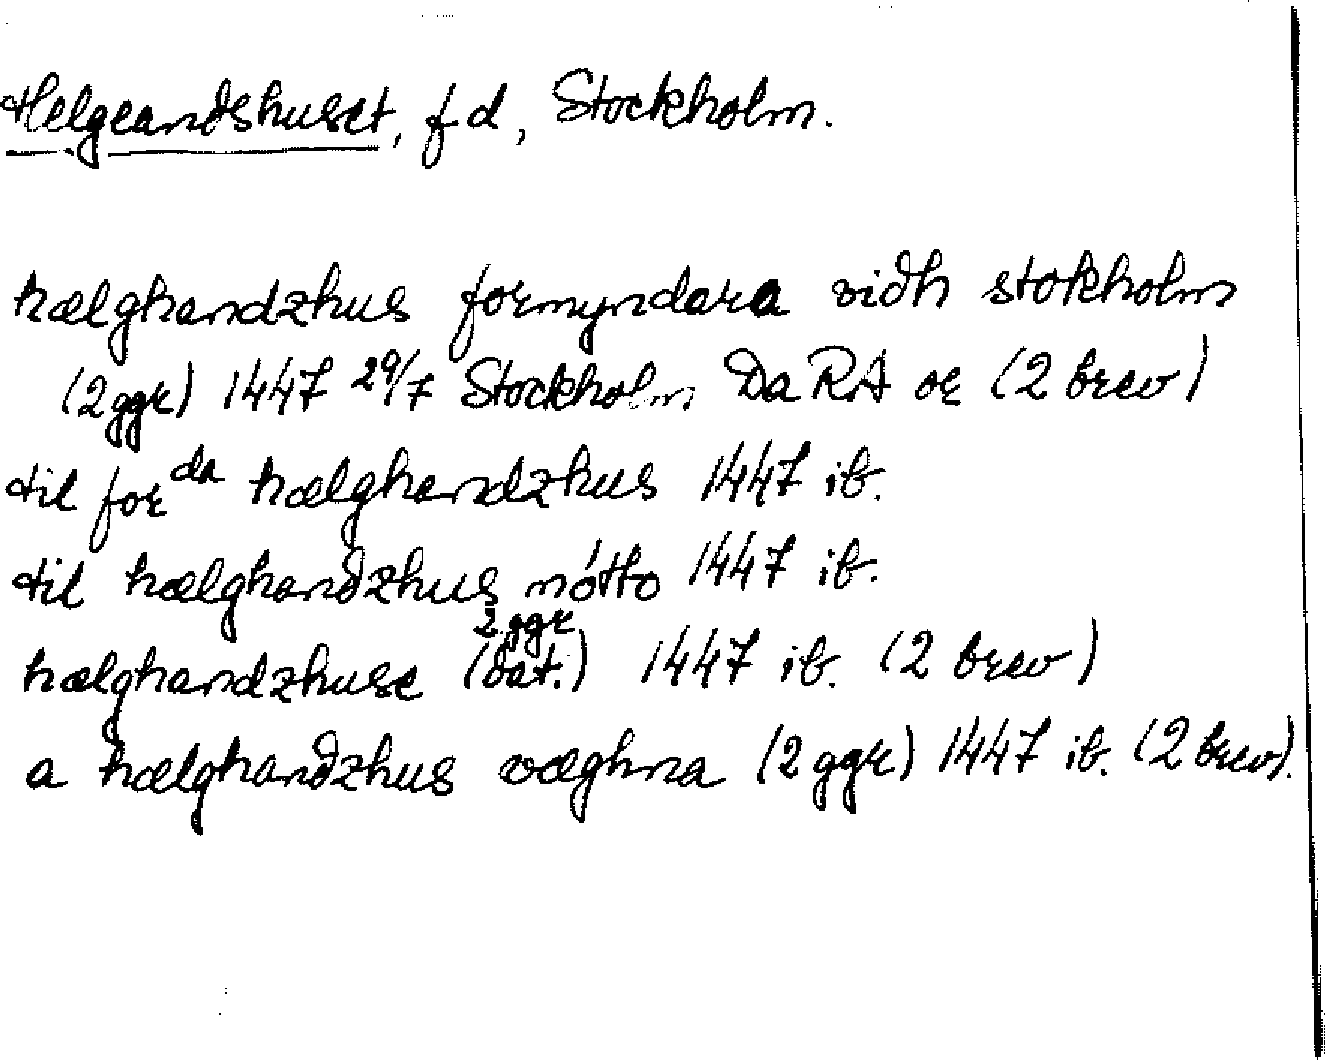 Helgeandshuset, fd, Stockholm.
hælghandzhus formyndara vidh stokholm
(2ggr) 1447 29/7 Stockholm DaRA or (2 brev)
til for da hælghandzhus 1447 ib.
til hælghandzhus nótto 1447 ib.
2ggr
hælghandzhuse (dat.) 1447 ib. (2 brev)
a hælghandzhus væghna (2 ggr) 1447 ib. (2 brev).